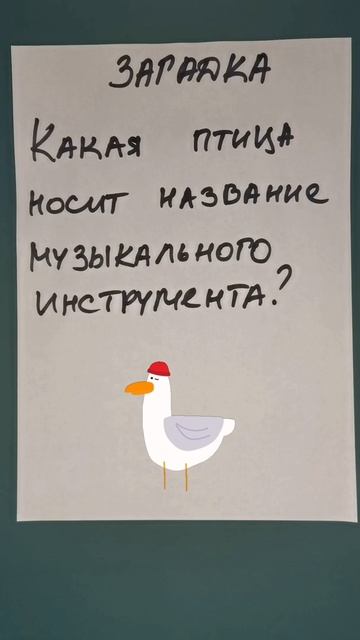 ЗАГАДКА
КАКАЯ ПТИЦА
НОСИТ НАЗВАНИЕ
МУЗЫКАЛЬНОГО
ИНСТРУМЕНТА?